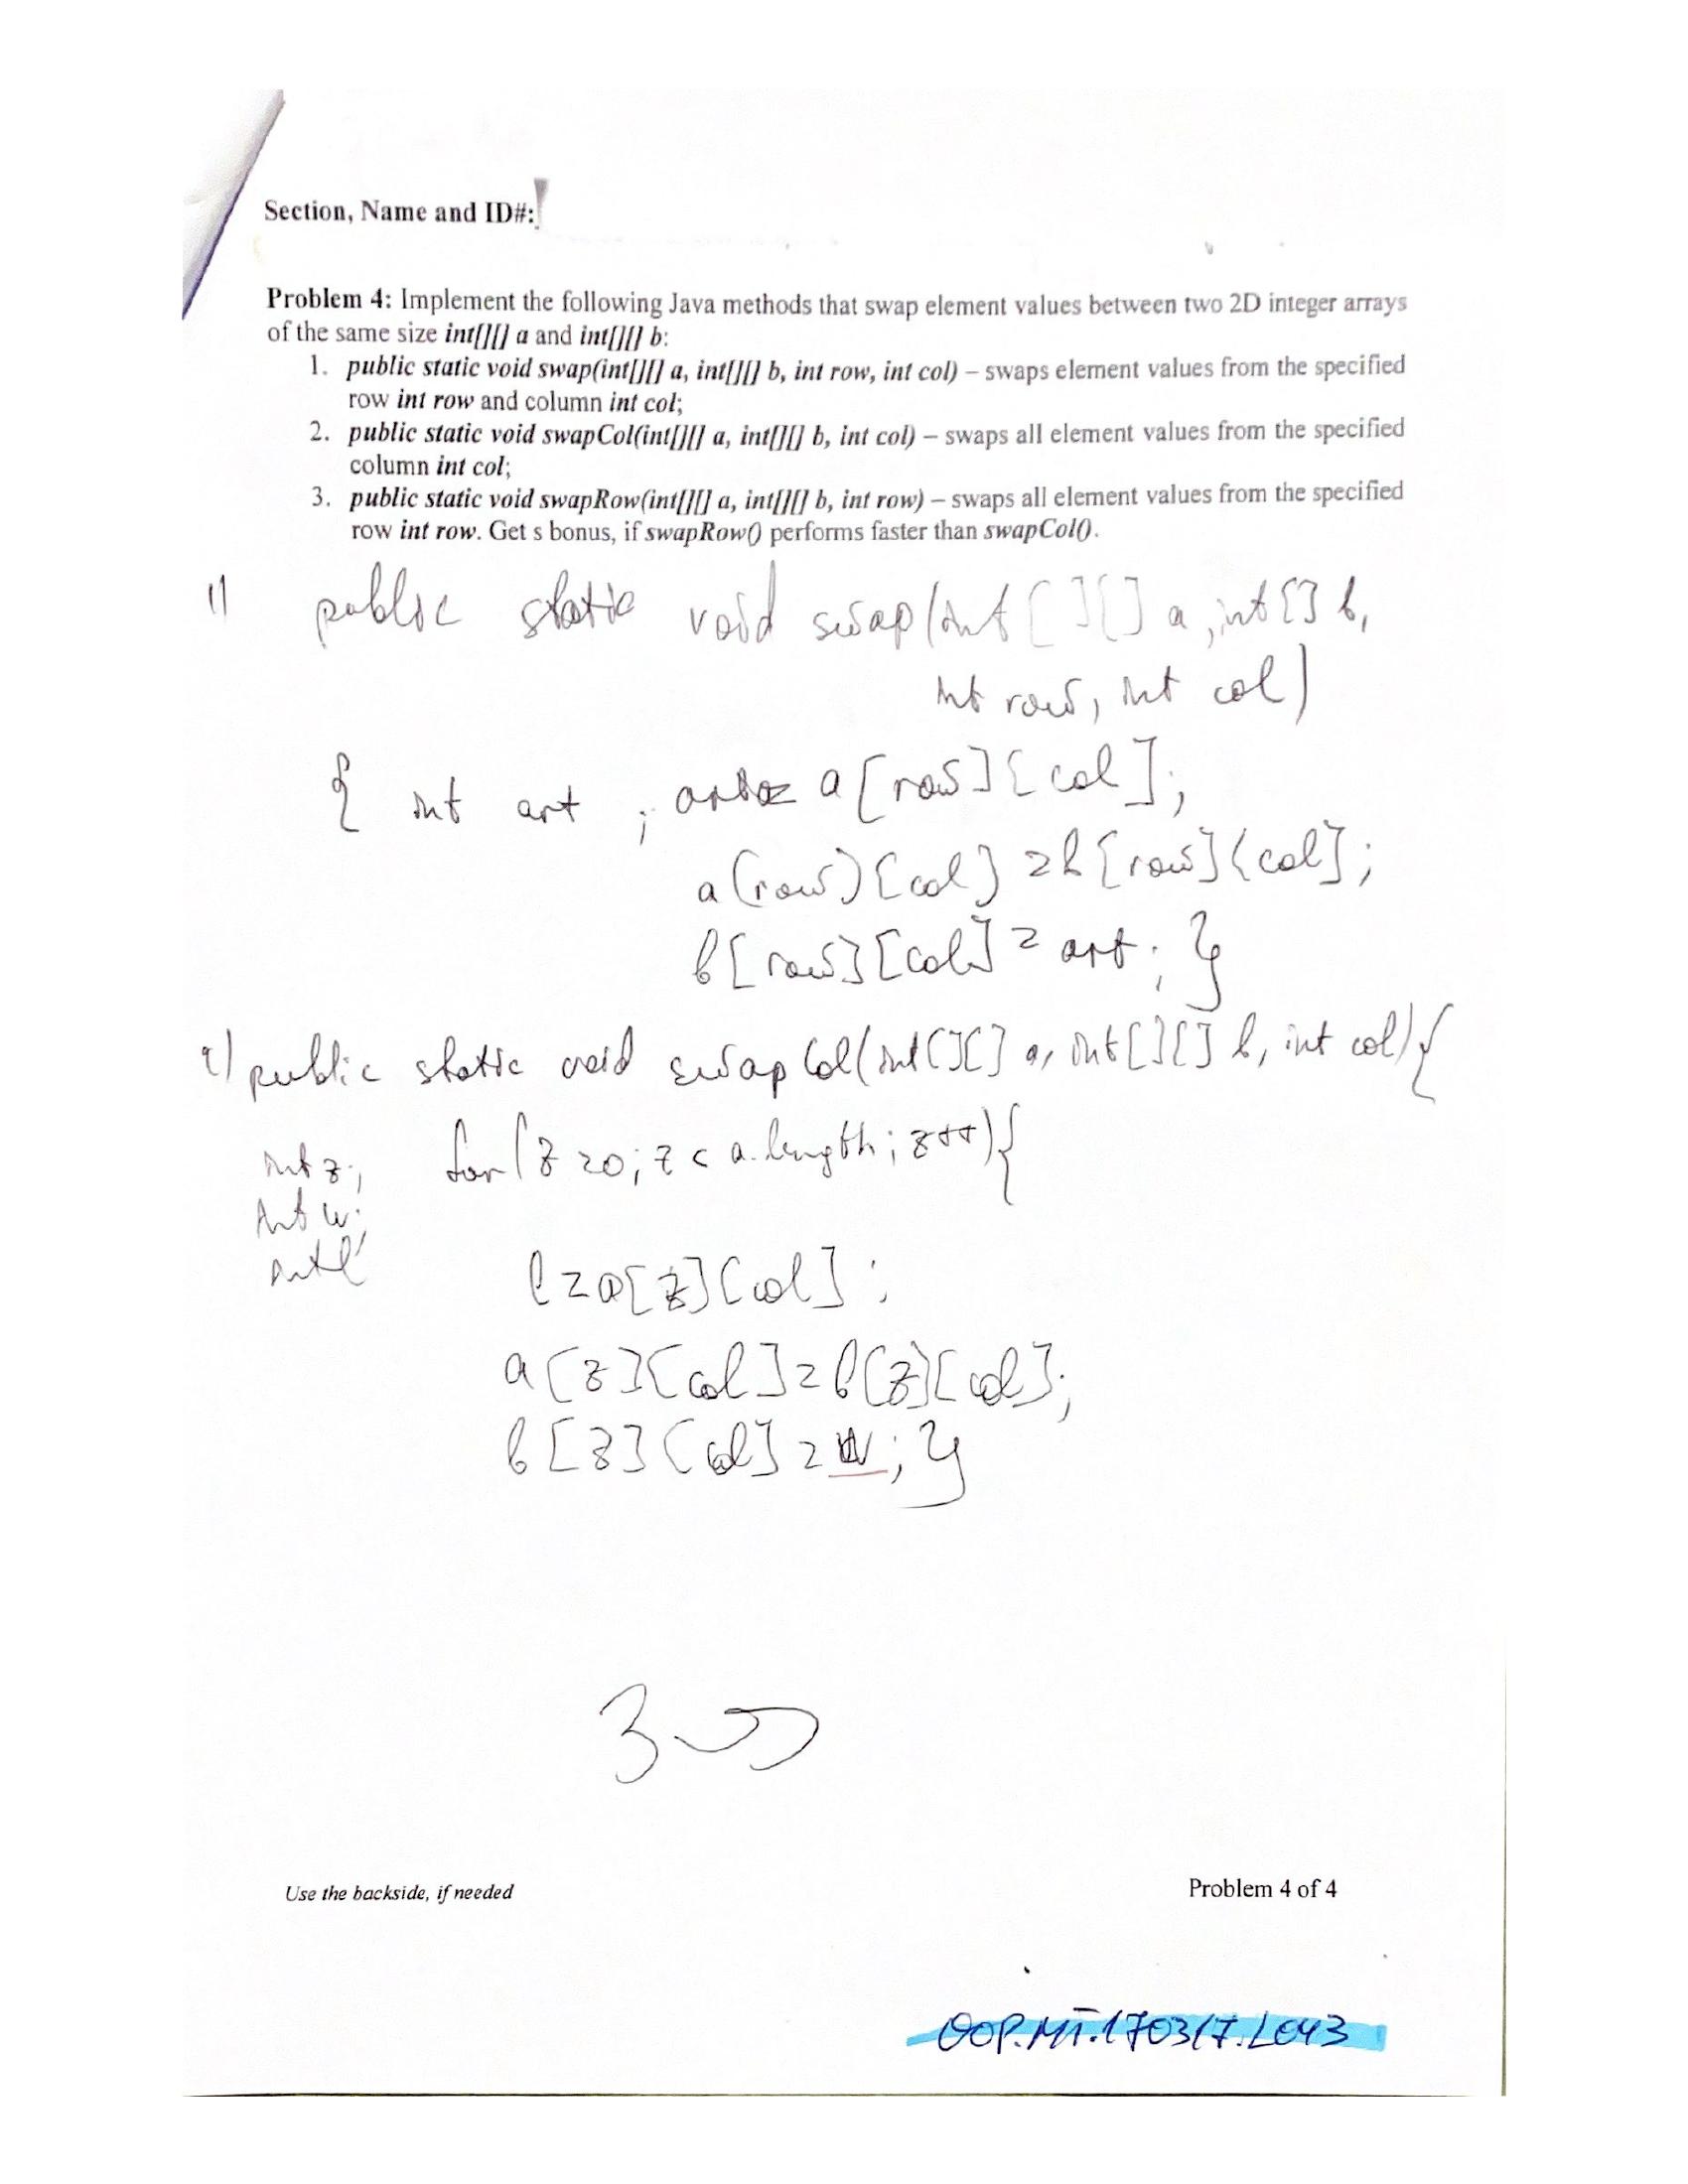 Section, Name and ID#:
Problem 4: Implement the following Java methods that swap element values between two 2D integer arrays
of the same size int[][] a and int[][] b:
1. public static void swap(int[][] a, int[][] b, int row, int col) – swaps element values from the specified
row int row and column int col;
2. public static void swapCol(int[][] a, int[][] b, int col) – swaps all element values from the specified
column int col;
3. public static void swapRow(int[][] a, int[][] b, int row) – swaps all element values from the specified
row int row. Get s bonus, if swapRow() performs faster than swapCol().
1) public static void swap(int [ ][ ] a, int [] b,
int row, int col)
{ int art ; art = a [row] [col];
a(row)[col] = b[row][col];
b[row][col] = art; }
2) public static void swapCol(int[][] a, int[][] b, int col){
int z; for(z=0; z < a.length; z++){
int w;
int l
l = a[z][col];
a[z][col] = b[z][col];
b[z][col] = w; }
3
Use the backside, if needed
Problem 4 of 4
OOP.MT.170317.L043